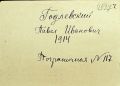 Годлевский
Павел Иванович
1914
Пограничная № 117